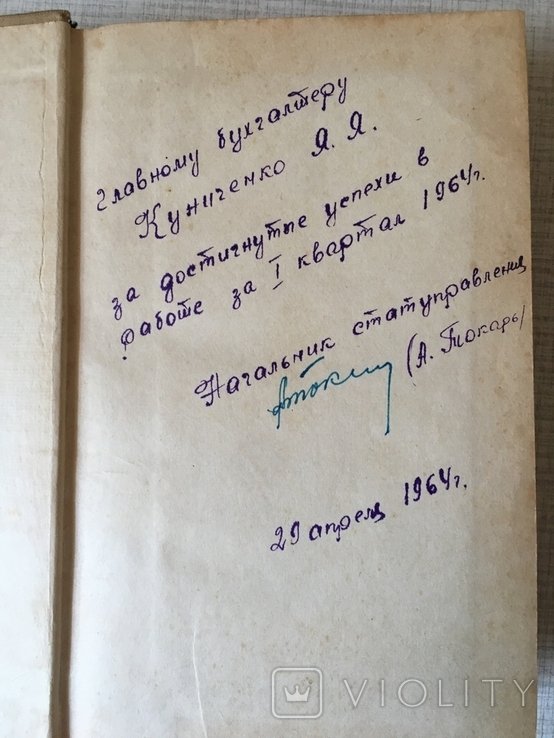 Главному бухгалтеру
Куниченко Я. Я.
за достигнутые успехи в
работе за I квартал 1964г.
Начальник статуправления
(А. Токарь)
29 апреля 1964г.
VIOLITY